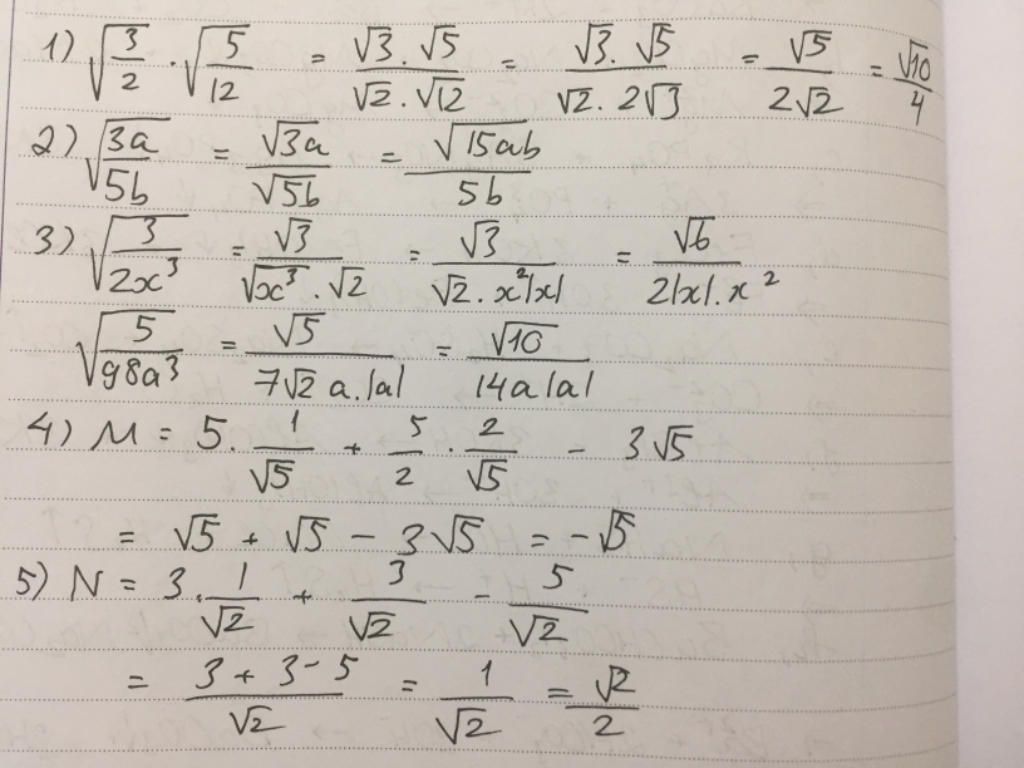 1) √(3/2) · √(5/12) = (√3 . √5)/(√2 . √12) = (√3 . √5)/(√2 . 2√3) = √5/(2√2) = √10/4
2) √(3a/5b) = √3a/√5b = √15ab/5b
3) √(3/2x³) = √3/(√x³ . √2) = √3/(√2 . x²|x|) = √6/(2|x|. x²)
√(5/98a³) = √5/(7√2 a.|a|) = √10/(14a|a|)
4) M = 5. 1/√5 + 5/2 . 2/√5 - 3√5
= √5 + √5 - 3√5 = -√5
5) N = 3. 1/√2 + 3/√2 - 5/√2
= (3 + 3 - 5)/√2 = 1/√2 = √2/2